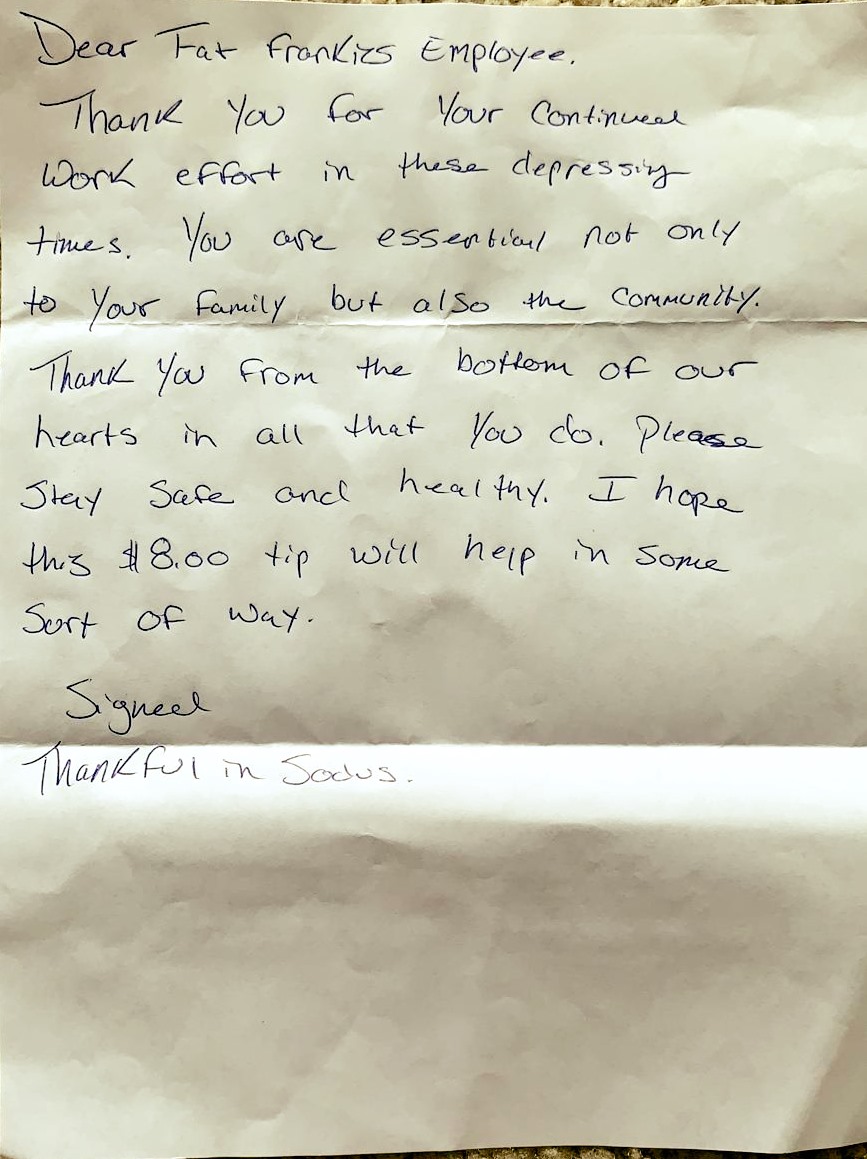 Dear Fat Frankies Employee.
Thank You for Your Continued
Work effort in these depressing
times. You are essential not only
to Your family but also the Community.
Thank You from the bottom of our
hearts in all that You do. Please
Stay Safe and healthy. I hope
this $8.00 tip will help in Some
Sort of Way.
Signed
Thankful in Sodus.